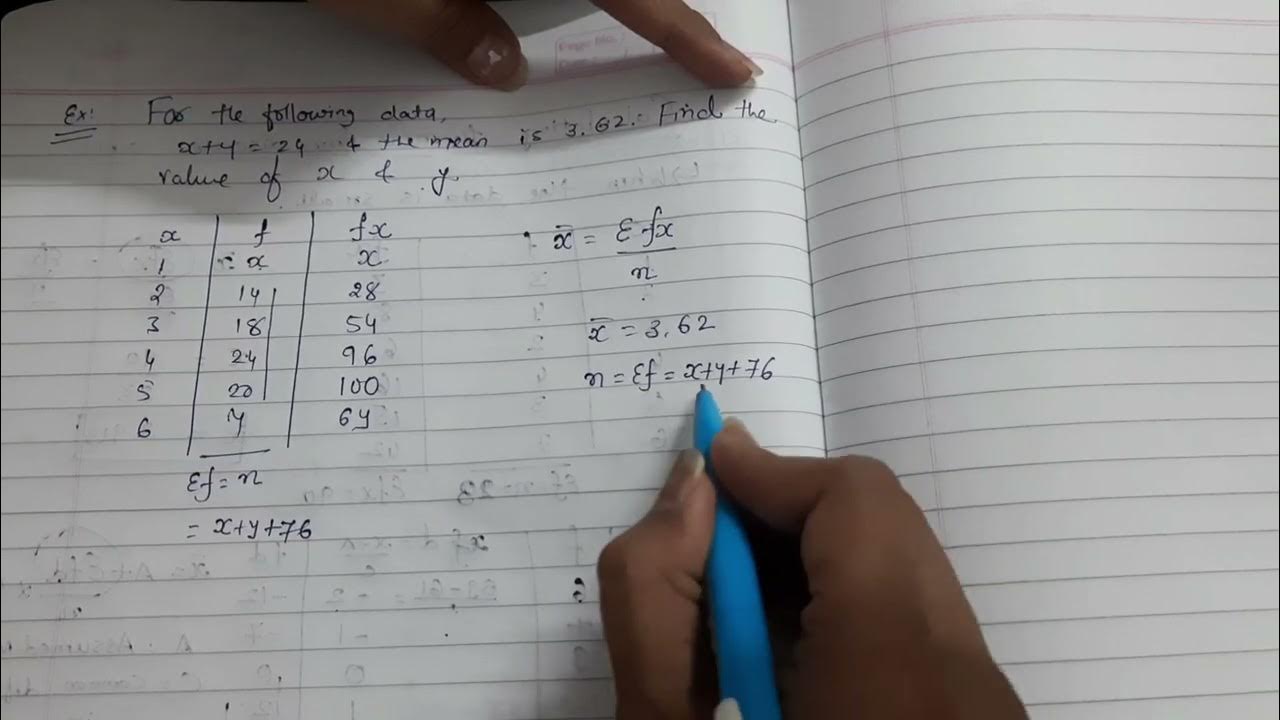 Ex: For the following data,
x+y = 24 & the mean is 3.62. Find the
value of x & y.
x f fx
1 x x
2 14 28
3 18 54
4 24 96
5 20 100
6 y 6y
Σf = n
= x+y+76
x̄ = Σfx
n
x̄ = 3.62
n = Σf = x+y+76
Page No.